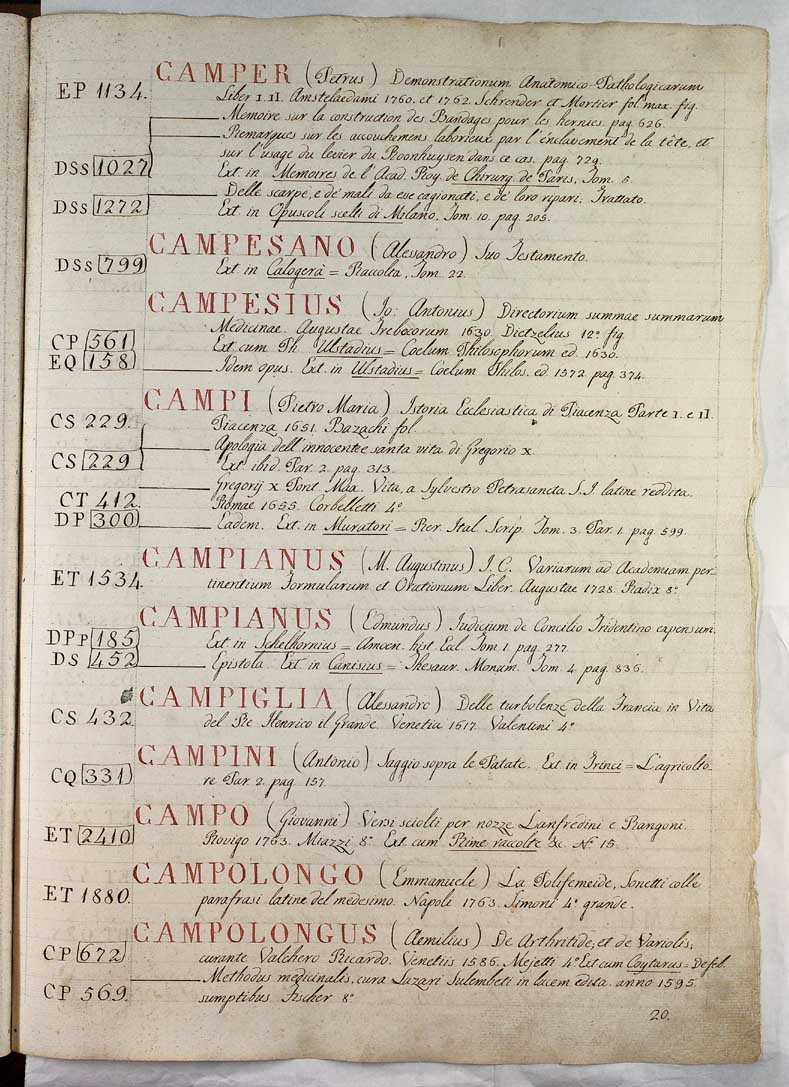 CAMPER (Petrus) Demonstrationum Anatomico-Pathologicarum
EP 1134. Liber I. II. Amstelaedami 1760. et 1762. Schrender et Mortier fol. max. fig.
Memoire sur la construction des Bandages pour les hernies. pag. 626.
Remarques sur les accouchemens laborieux par l'énclavement de la tête, et
sur l'usage du levier du Roonhuysen dans ce cas. pag. 729.
DSs 1027 Ext. in Memoires de l'Acad. Roy. de Chirurg. de Paris, Tom. 5.
Delle scarpe, e de' mali da esse cagionati, e de' loro ripari. Trattato.
DSs 1272 Ext. in Opuscoli scelti di Milano, Tom. 10. pag. 205.
CAMPESANO (Alessandro) Suo Testamento.
DSs 799 Ext. in Calogerà = Raccolta, Tom. 22.
CAMPESIUS (Jo: Antonius) Directorium summae summarum
Medicinae. Augustae Trebocorum 1630. Dietzelius 12º fig.
CP 561 Ext. cum Ph. Ulstadius = Coelum Philosophorum ed. 1630.
EQ 158 Idem opus. Ext. in Ulstadius = Coelum Philos. ed. 1572. pag. 374.
CAMPI (Pietro Maria) Istoria Ecclesiastica di Piacenza Parte I. e II.
CS 229. Piacenza 1651. Bazachi fol.
Apologia dell'innocente, e santa vita di Gregorio X.
CS 229 Ext. ibid. Par. 2. pag. 313.
Gregorij X Pont. Max. Vita, a Sylvestro Petrasancta S. J. latine reddita.
CT 412. Romae 1655. Corbelletti 4º
DP 300 Eadem. Ext. in Muratori = Rer. Ital. Scrip. Tom. 3. Par. 1. pag. 599.
CAMPIANUS (M. Augustinus) J. C. Variarum ad Academiam per-
ET 1534. tinentium Formularum et Orationum Liber. Augustae 1728. Radix 8º
CAMPIANUS (Edmundus) Judicium de Concilio Tridentino expensum.
DPp 185 Ext. in Schelhornius = Amoen. hist. Eccl. Tom. 1. pag. 277.
DS 452 Epistola. Ext. in Canisius = Thesaur. Monum. Tom. 4. pag. 836.
CAMPIGLIA (Alessandro) Delle turbolenze della Francia in Vita
CS 432. del Re Henrico il Grande. Venetia 1617. Valentini 4º
CAMPINI (Antonio) Saggio sopra le Patate. Ext. in Trinci = L'agricolto-
CQ 331 re Par. 2. pag. 157.
CAMPO (Giovanni) Versi sciolti per nozze Lanfredini e Rangoni.
ET 2410 Rovigo 1763. Miazzi 8º Ext. cum Rime raccolte &c. Nº 15.
CAMPOLONGO (Emmanuele) La Polifemeide, Sonetti colle
ET 1880. parafrasi latine del medesimo. Napoli 1763. Simoni 4º grande.
CAMPOLONGUS (Aemilius) De Arthritide, et de Variolis,
CP 672 curante Valchero Ricardo. Venetiis 1586. Mejetti 4º Ext. cum Coytarus = De feb.
Methodus medicinalis, cura Lazari Sulembeti in lucem edita. anno 1595.
CP 569 sumptibus Fischer 8º
20.